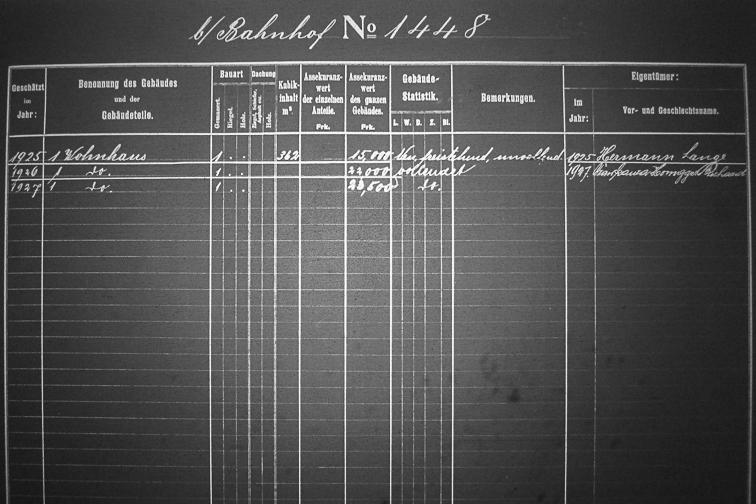 b/Bahnhof No 1448
Geschätzt im Jahr:
Benennung des Gebäudes und der Gebäudeteile.
Bauart
Gemauert.
Riegel.
Holz.
Dachung
Holz.
Kubikinhalt m³.
Assekuranzwert der einzelnen Anteile. Frk.
Assekuranzwert des ganzen Gebäudes. Frk.
Gebäude-Statistik.
L. W. D. Z. Bl.
Bemerkungen.
Eigentümer:
im Jahr:
Vor- und Geschlechtsname.
1925 1 Wohnhaus 1 . . 362 15,000 Neu, freistehend, unvollend. 1925 Hermann Lange
1926 1 do. 1 . . 22000 vollendet 1927.
1927 1 do. 1 . . do.